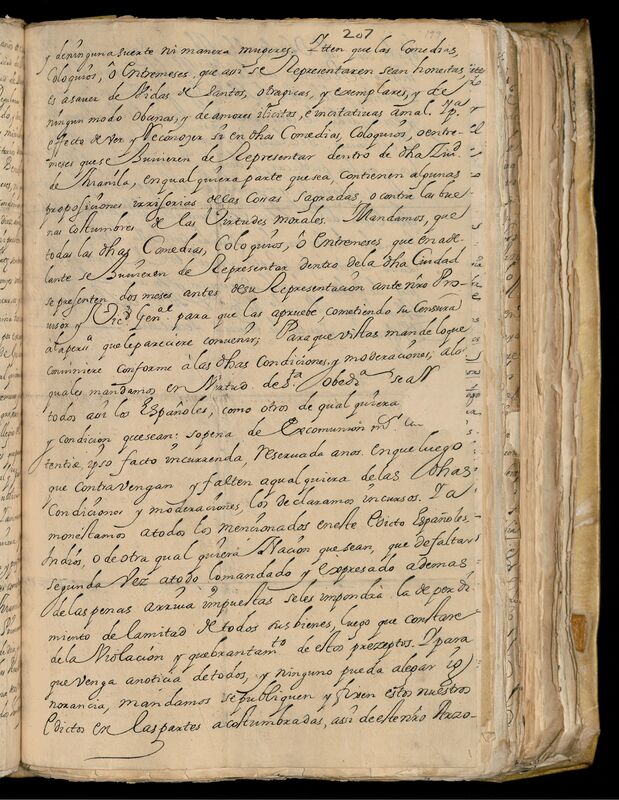 207
y de ninguna suerte ni manera mugeres. Itten que las Comedias,
Coloquios, ô Entremeses, que assi se Representaren sean honestas
es asaver de Vidas de Santos, otragicas, y exemplares, y de
ningun modo obcenas, y de amores ilicitos, e incitativas amal. Ypa.
effecto de ver, y Reconozer si en dhas Comedias, Coloquios, o entre-
meses que se huvieren de Representar dentro de dha Ziud.
de Manila, en qual quiera parte que sea, contienen algunas
proposiciones irrisorias de las Cosas Sagradas, o contra las bue-
nas costumbres de las Virtudes morales. Mandamos, que
todas las dhas Comedias, Coloquios, o Entremeses que en ade-
lante se huvieren de Representar dentro dela dha Ciudad
se presenten dos meses antes desu Representación ante nro Pro-
visor y Vico. Genal. para que las apruebe cometiendo su Censura
ala persa. que le pareciere convenir; Para que vistas mande lo que
conviniere conforme à las dhas Condiciones, y moderaciones; alo
quales mandamos en Virtud de Sta Obeda. se a
todos assi los Españoles, como otros de qual quiera
y condicion que sean: sopena de Excomunion mr.
tentiæ, ipso facto incurrenda, reservada anos. En que luego
que contravengan y falten aqual quiera de las dhas
Condiciones y moderaciones los declaramos incursos. Y a
monestamos atodos los mencionados en este Edicto Españoles,
Indios, o de otra qual quiera Nacion que sean, que de faltar
segunda Vez atodo lo mandado y expresado ademas
de las penas arriva impuestas se les impondrá la de perdi-
miento de la mitad de todos sus bienes, luego que constare
de la Violacion y quebrantamto. de estos prezeptos. Y para
que venga anoticia de todos, y ninguno pueda alegar ig-
norancia, mandamos se publiquen y fixen estos nuestros
Edictos en las partes acostumbradas, assi de este nro Arzo-